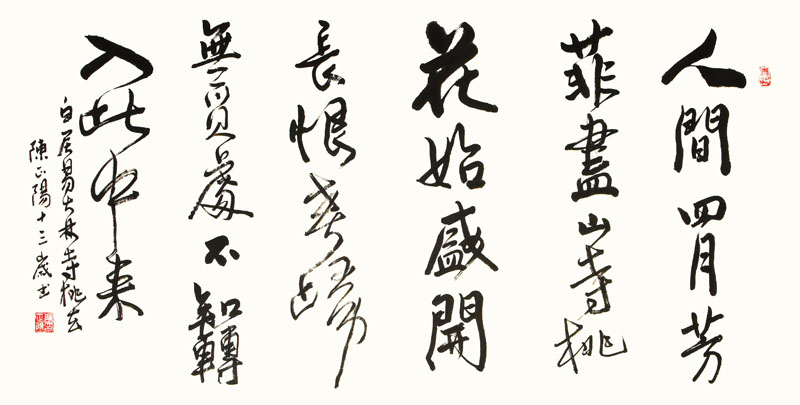 人間四月芳
菲盡山寺桃
花始盛開
長恨春歸
無覓處不知轉
入此中来
白居易大林寺桃花
陳正陽十三歲书